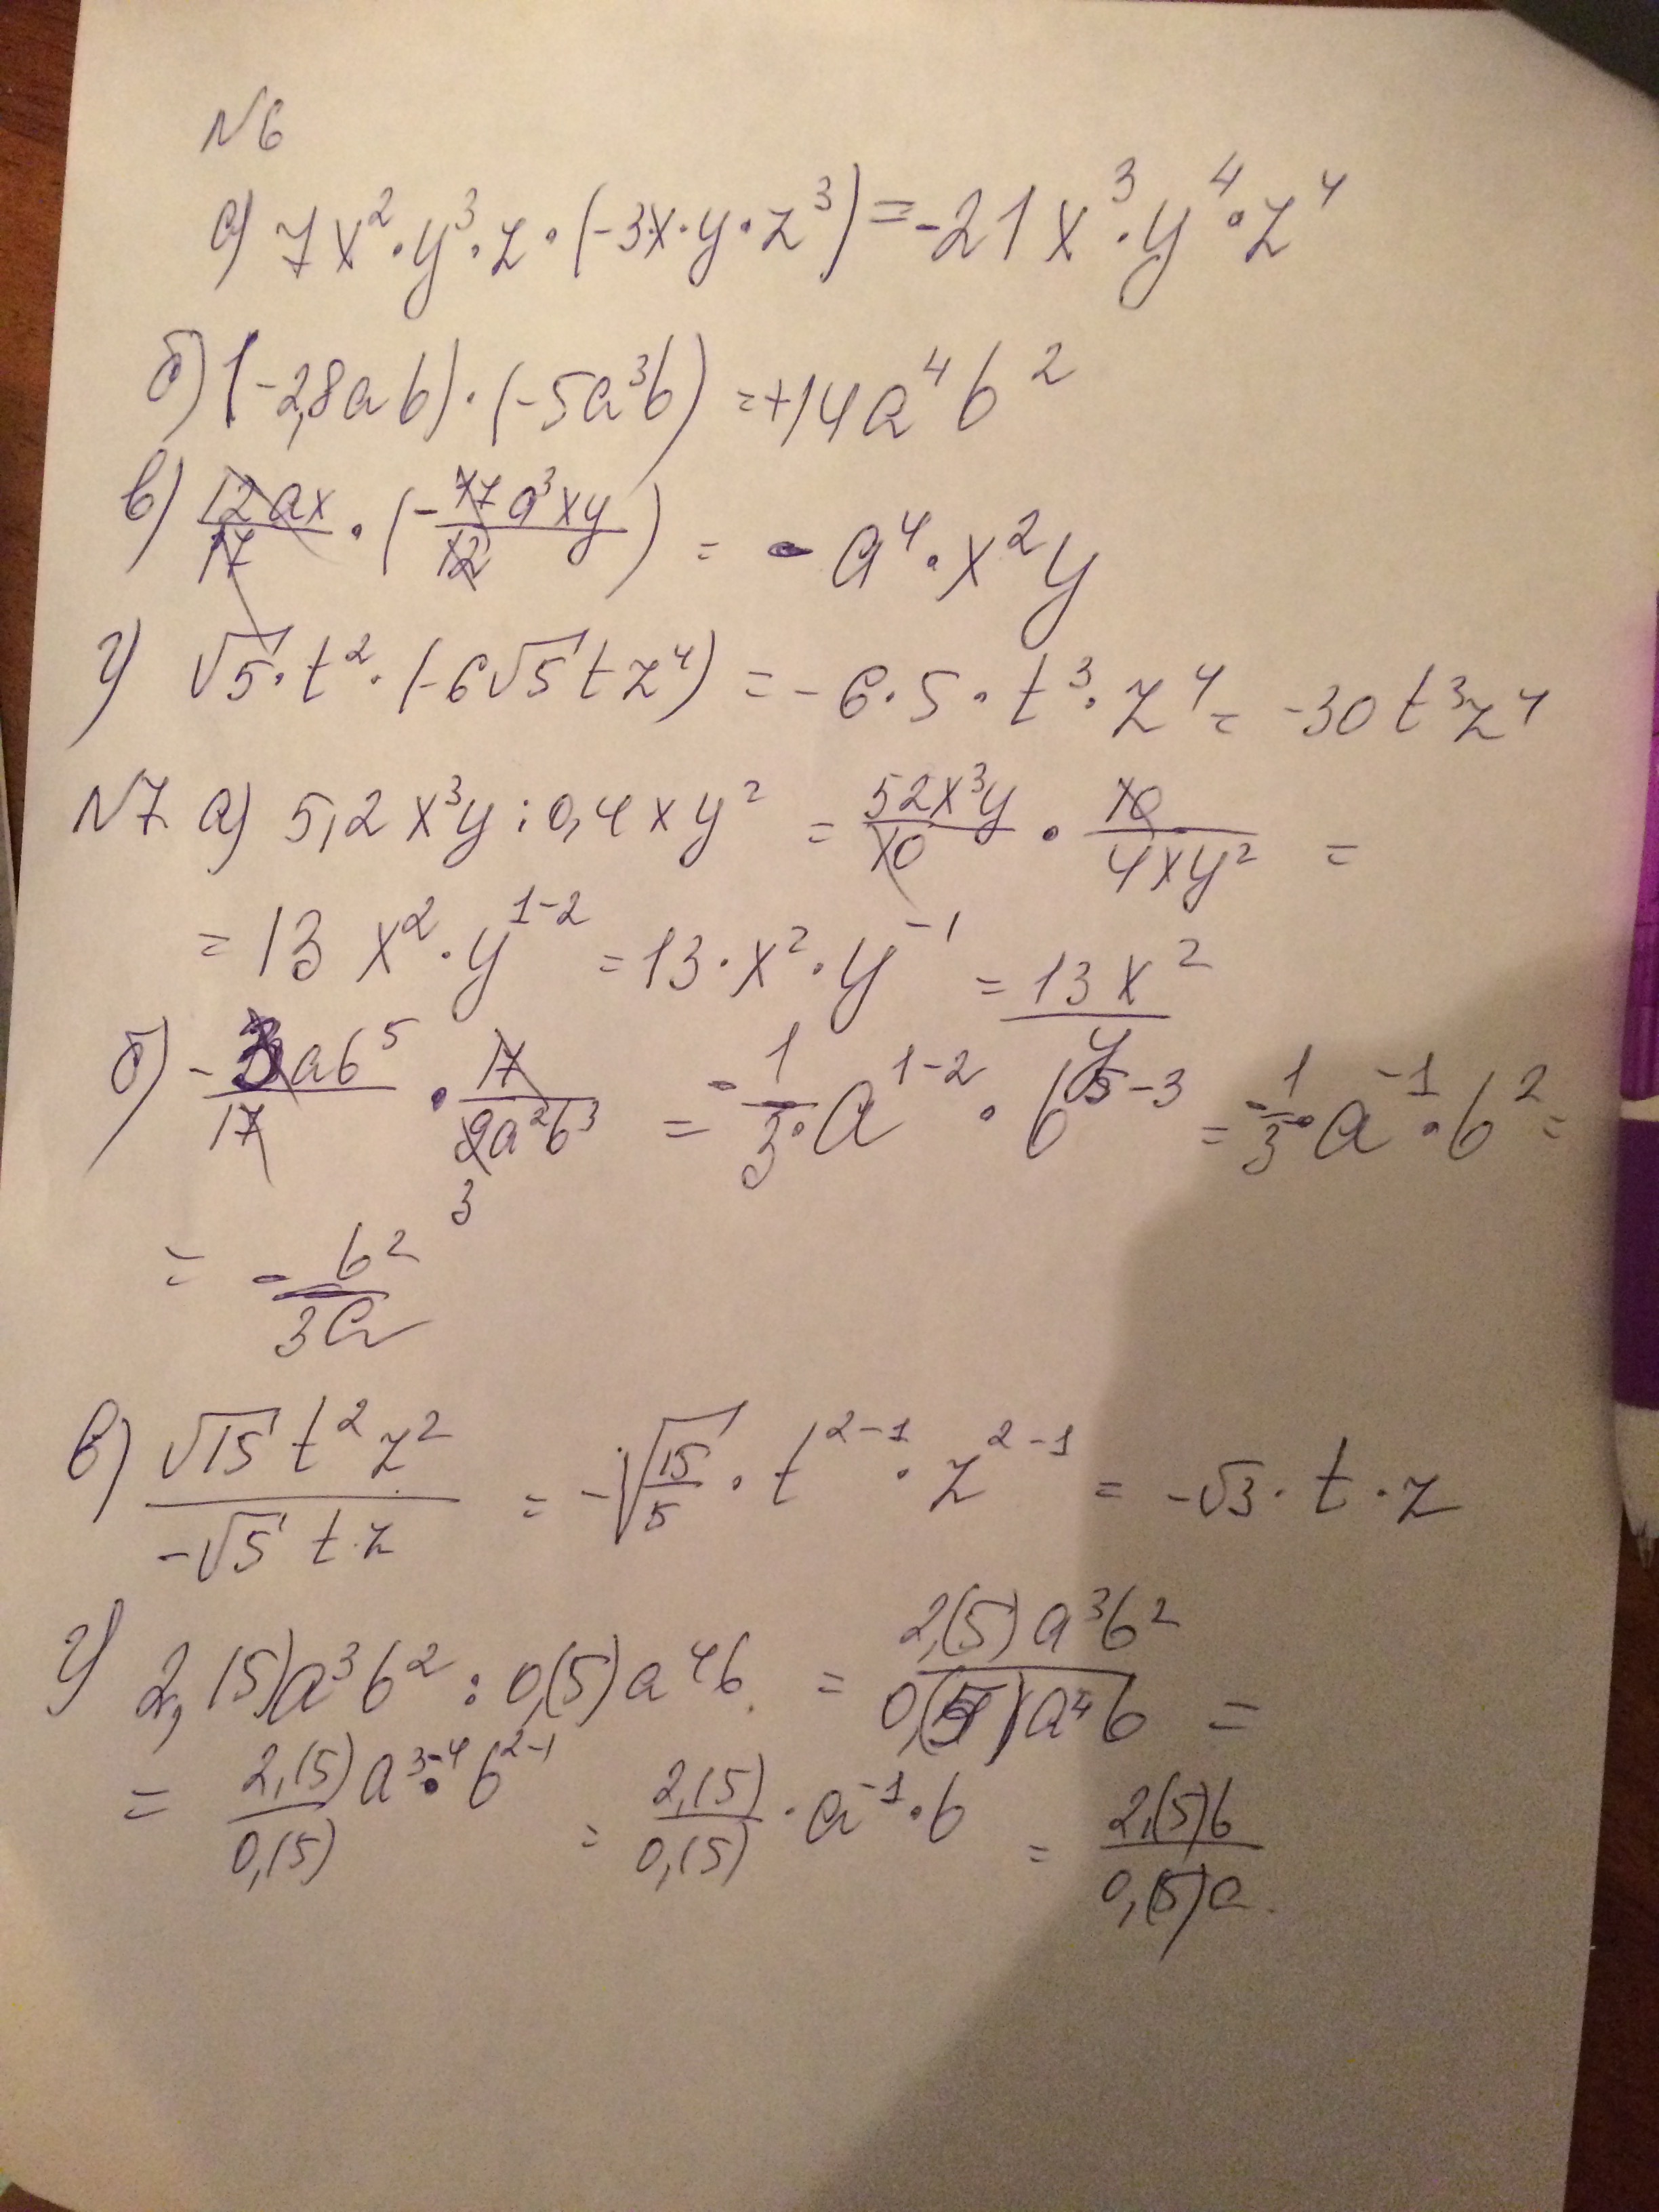 №6
а) 7x²·y³·z·(-3x·y·z³) = -21x³·y⁴·z⁴
б) (-2,8ab)·(-5a³b) = +14a⁴b²
в) 12ax/17 · (-17a³xy/12) = -a⁴·x²y
г) √5·t²·(-6√5tz⁴) = -6·5·t³·z⁴ = -30t³z⁴
№7 а) 5,2x³y : 0,4xy² = 52x³y/10 · 10/4xy² =
= 13x²·y¹⁻² = 13·x²·y⁻¹ = 13x²/y
б) -3ab⁵/17 · 17/9a²b³ = -1/3·a¹⁻²·b⁵⁻³ = -1/3·a⁻¹·b² =
3
= -b²/3a
в) √15t²z²/-√5t·z = -√(15/5)·t²⁻¹·z²⁻¹ = -√3·t·z
г) 2,(5)a³b² : 0,(5)a⁴b = 2,(5)a³b²/0,(5)a⁴b =
= 2,(5)/0,(5) a³⁻⁴·b²⁻¹ = 2,(5)/0,(5)·a⁻¹·b = 2,(5)b/0,(5)a.